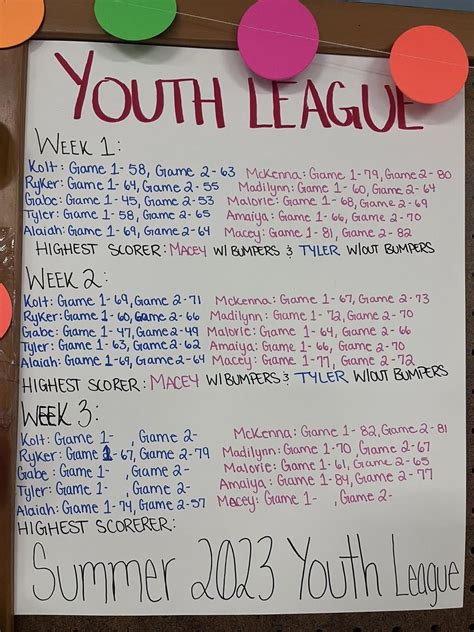 YOUTH LEAGUE
WEEK 1:
Kolt: Game 1- 58, Game 2- 63 McKenna: Game 1- 79, Game 2- 80
Ryker: Game 1- 64, Game 2- 55 Madilynn: Game 1- 60, Game 2- 64
Gabe: Game 1- 45, Game 2- 53 Malorie: Game 1- 68, Game 2- 69
Tyler: Game 1- 58, Game 2- 65 Amaiya: Game 1- 66, Game 2- 70
Alaiah: Game 1- 69, Game 2- 64 Macey: Game 1- 81, Game 2- 82
HIGHEST SCORER: MACEY W/ BUMPERS & TYLER W/OUT BUMPERS
WEEK 2:
Kolt: Game 1- 69, Game 2- 71 McKenna: Game 1- 67, Game 2- 73
Ryker: Game 1- 60, Game 2- 66 Madilynn: Game 1- 72, Game 2- 70
Gabe: Game 1- 47, Game 2- 49 Malorie: Game 1- 64, Game 2- 66
Tyler: Game 1- 63, Game 2- 62 Amaiya: Game 1- 66, Game 2- 70
Alaiah: Game 1- 69, Game 2- 64 Macey: Game 1- 77, Game 2- 72
HIGHEST SCORER: MACEY W/ BUMPERS & TYLER W/OUT BUMPERS
WEEK 3:
Kolt: Game 1- , Game 2- McKenna: Game 1- 82, Game 2- 81
Ryker: Game 1- 67, Game 2- 79 Madilynn: Game 1- 70, Game 2- 67
Gabe: Game 1- , Game 2- Malorie: Game 1- 61, Game 2- 65
Tyler: Game 1- , Game 2- Amaiya: Game 1- 84, Game 2- 77
Alaiah: Game 1- 74, Game 2- 57 Macey: Game 1- , Game 2-
HIGHEST SCORERER:
Summer 2023 Youth League